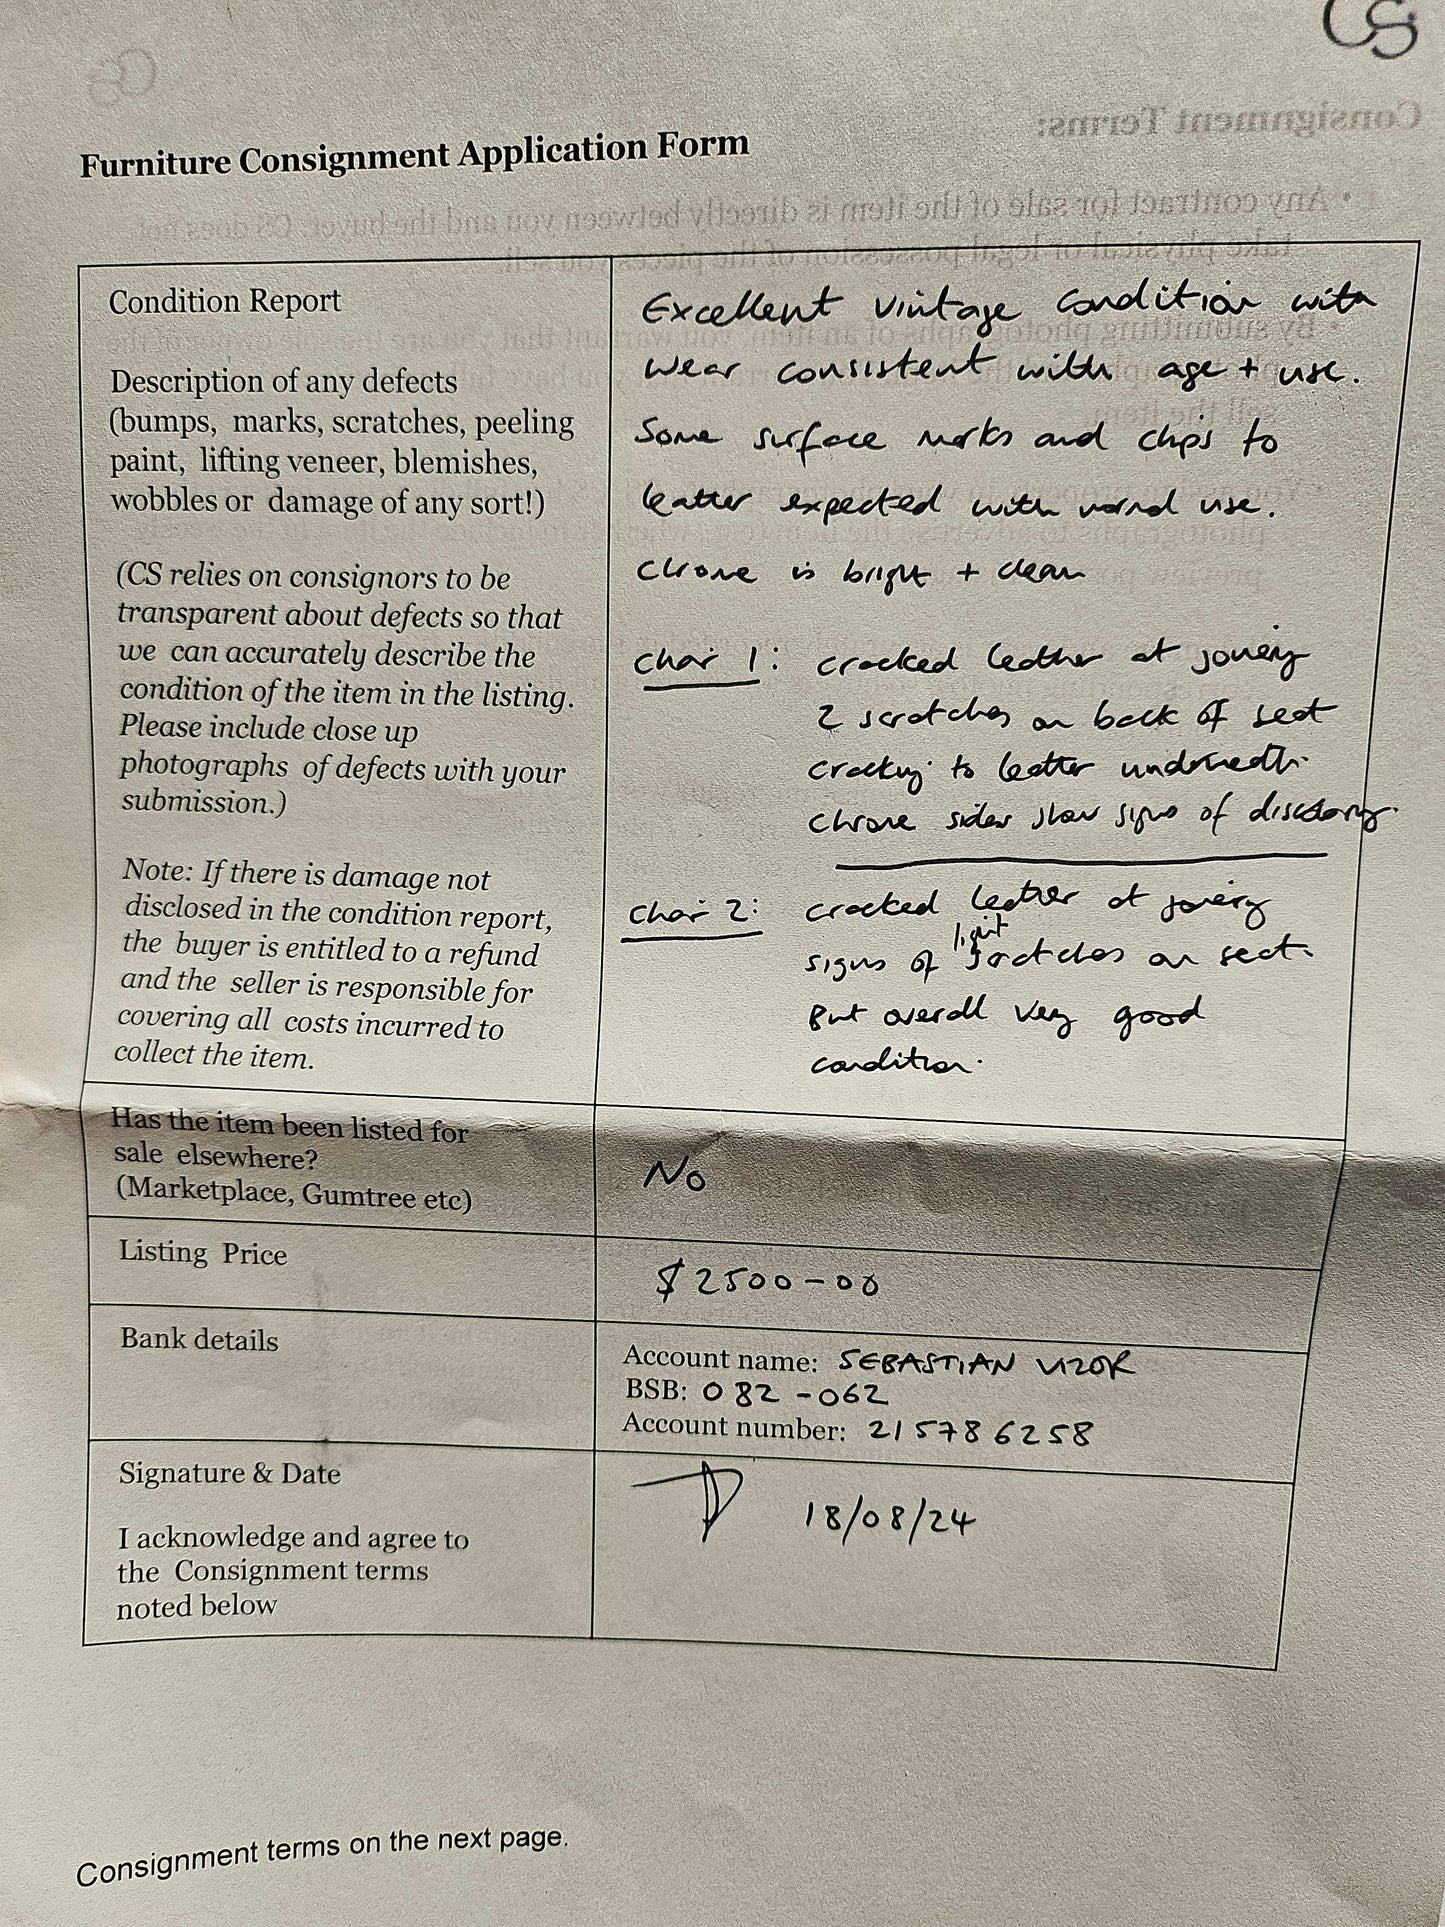 CS
Furniture Consignment Application Form
Condition Report
Description of any defects
(bumps, marks, scratches, peeling
paint, lifting veneer, blemishes,
wobbles or damage of any sort!)
(CS relies on consignors to be
transparent about defects so that
we can accurately describe the
condition of the item in the listing.
Please include close up
photographs of defects with your
submission.)
Note: If there is damage not
disclosed in the condition report,
the buyer is entitled to a refund
and the seller is responsible for
covering all costs incurred to
collect the item.
Excellent vintage condition with
wear consistent with age + use.
Some surface marks and chips to
leather expected with normal use.
chrome is bright + clean
chair 1: cracked leather at joinery
2 scratches on back of seat
cracking to leather underneath.
chrome sides show signs of
chair 2: cracked leather at joinery
signs of light scratches on seat.
But overall very good
condition.
Has the item been listed for
sale elsewhere?
(Marketplace, Gumtree etc)
No
Listing Price
$2500-00
Bank details
Account name: SEBASTIAN VIZOR
BSB: 082-062
Account number: 215786258
Signature & Date
I acknowledge and agree to
the Consignment terms
noted below
18/08/24
Consignment terms on the next page.
Consignment Terms:
• Any contract for sale of the item is directly between you and the buyer. CS does not
take physical or legal possession of the pieces you sell.